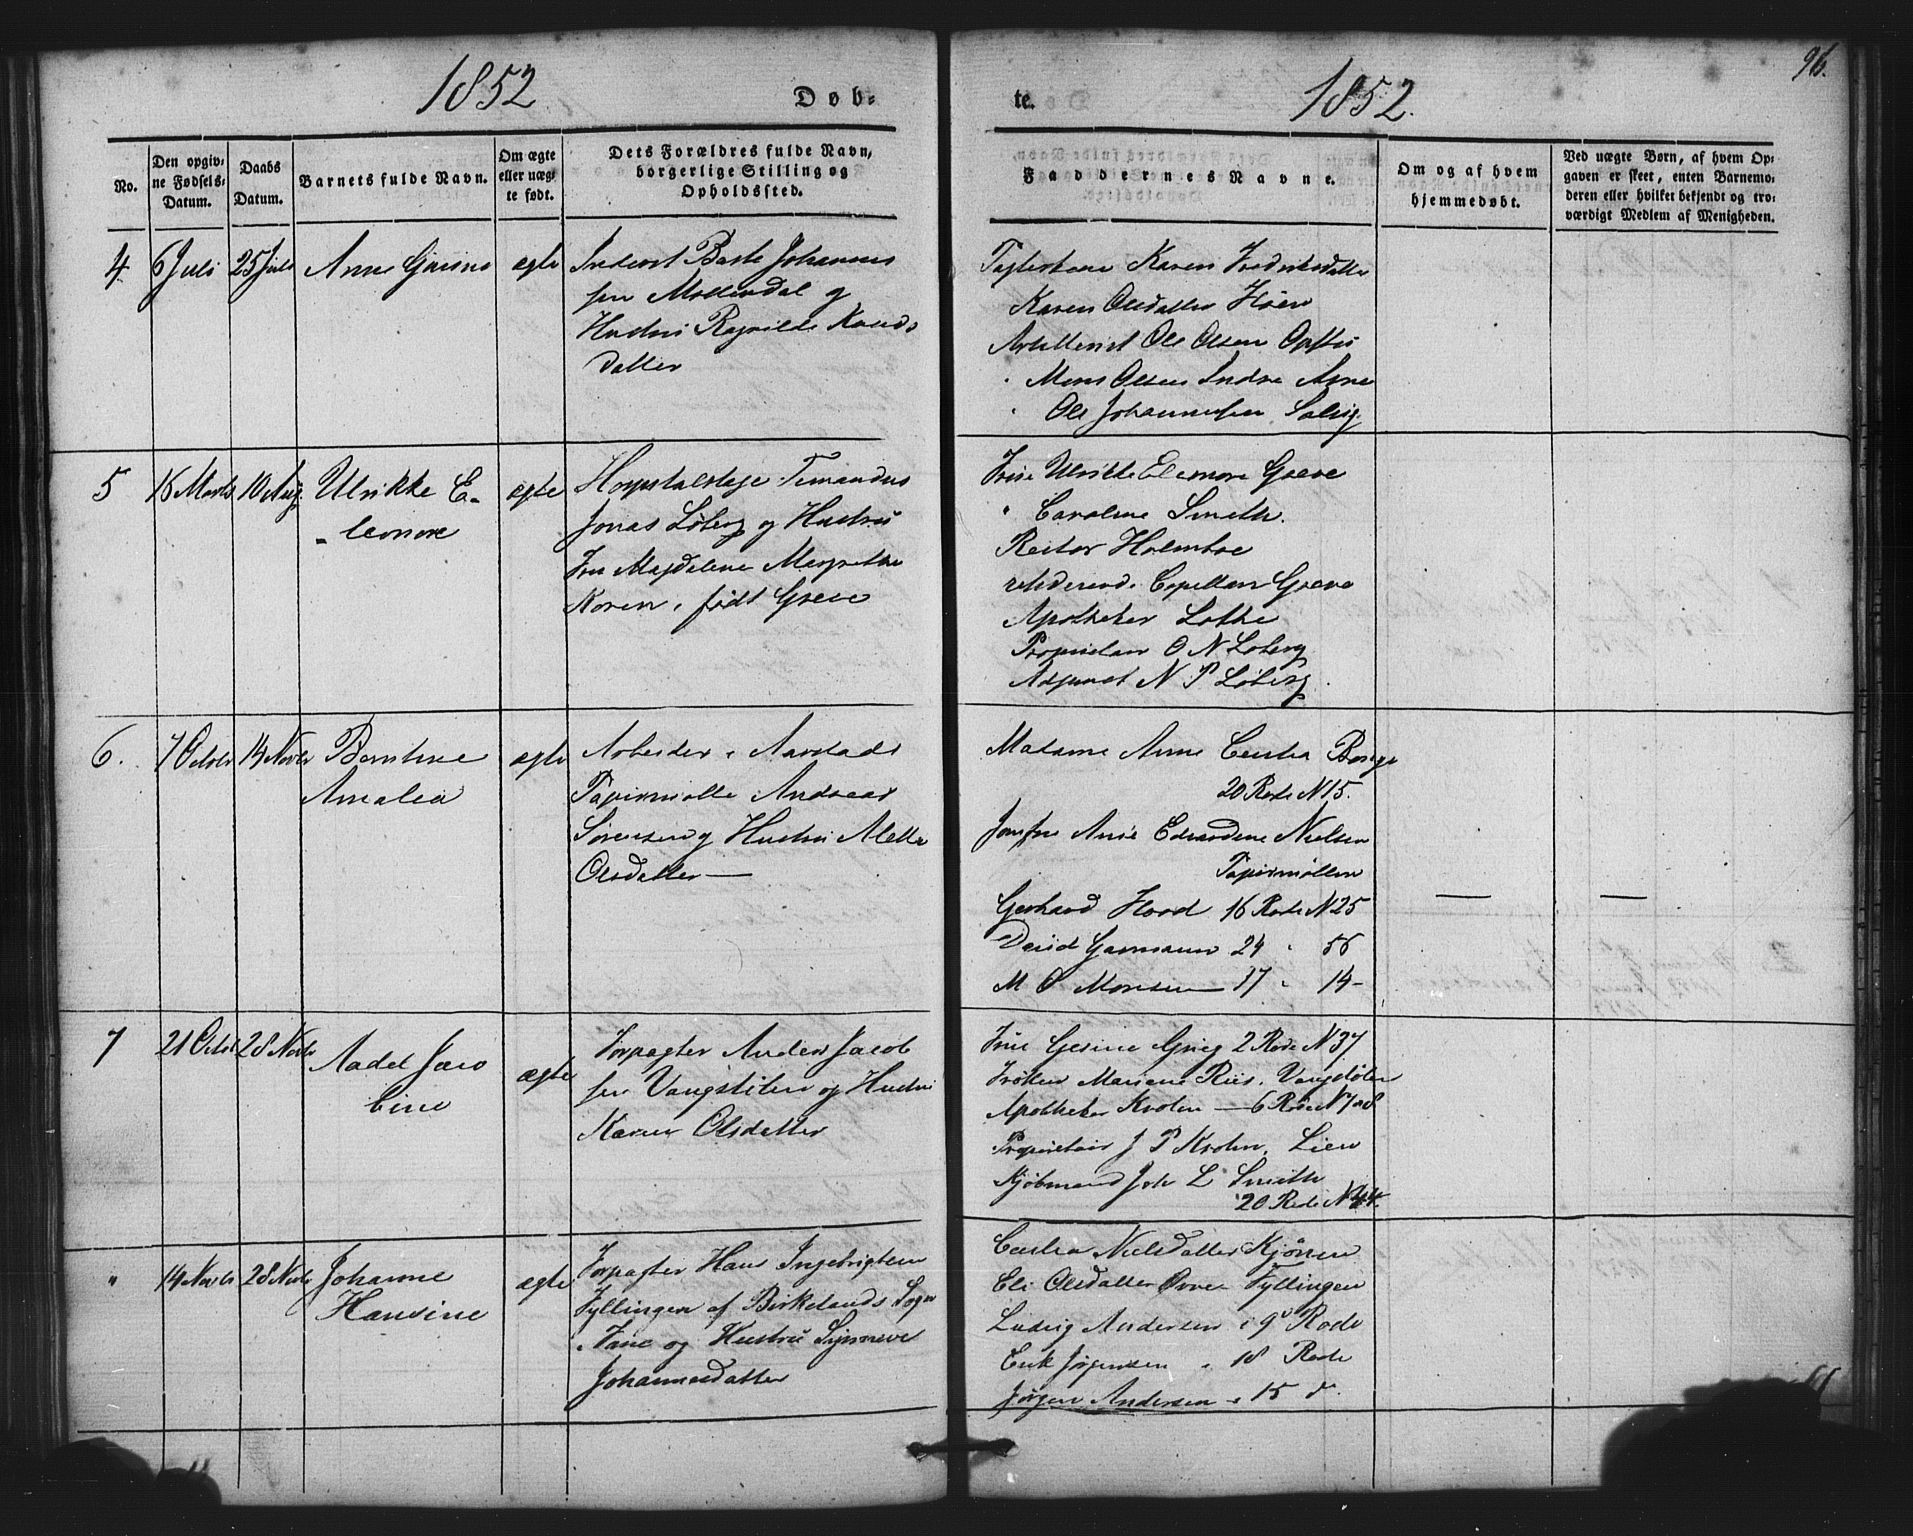 1852
Døb=
No.
Den opgiv=
ne Fødsels=
Datum.
Daabs
Datum.
Barnets fulde Navn.
Om ægte
eller uæg=
te født.
Dets Forældres fulde Navn,
borgerlige Stilling og
Opholdssted.
4
6 Juli
25 Juli
Anne
ægte
Johannes
sen Møllendal og
Hustru Ragnilde Knuds
datter
5
16 Marts
10 Aug
Ulrikke E-
- leonore
ægte
Hospitalslæge Timandus
Jonas Løberg og Hustru
Fru Magdalene Margrethe
Koren, født Greve
6.
7 Octbr
14 Novbr
Berntine
Amalia
ægte
Arbeider i Aarstads
Papirmølle Andreas
Sørensen og Hustru Mette
Olsdatter —
7
21 Octbr
28 Novbr
Aadel Jaco
bine
ægte
Forpagter Anders Jacob
sen Vangstilen og Hustru
Karen Olsdatter
"
14 Novbr
28 Novbr
Johanne
Hansine
ægte
Forpagter Hans Ingebrigtsen
Fyllingen af Birkelands Sogn
og Hustru Synneve
Johannesdatter
96.
te.
1852.
Faddernes Navne.
Om og af hvem
hjemmedøbt.
Ved uægte Børn, af hvem Op=
gaven er skeet, enten Barnemo=
deren eller hvilket bekjendt og tro=
værdigt Medlem af Menigheden.
Karen Fredriksdatter
Karen Olsdatter
Artillerist Ole Olsen
" Mons Olsen Indre Arne
" Ole Johannessen
Frue Ulrikke Eleonore Greve
" Caroline Smith.
Rector Holmboe
residerende Capellan Greve
Apotheker Lothe
Proprietair O N Løberg
Adjunct N P Løberg.
Madame Anne Cecilia
20 Rode N 15.
Jomfru Anne Edvardine Nielsen
Papirmøllen
Gerhard 16 Rode N 25
David Garmann 24 " 56
M O Monsen 17 " 14 -
Frue Gesine Grieg 2 Rode N 37
Frøken Mariane Riis,
Apotheker Krohn — 6 Rode N 7 8
Proprietair J P Krohn, Lien
Kjøbmand Joh L Smith
20 Rode N 44.
Cecilia Nielsdatter
Eli Olsdatter Øvre Fyllingen
Ludvig Andersen i 9 Rode
Erik Jørgensen " 18 Rode
Jørgen Andersen " 15 do